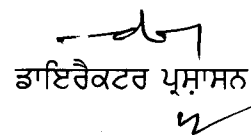 ਡਾਇਰੈਕਟਰ ਪ੍ਰਸ਼ਾਸਨ